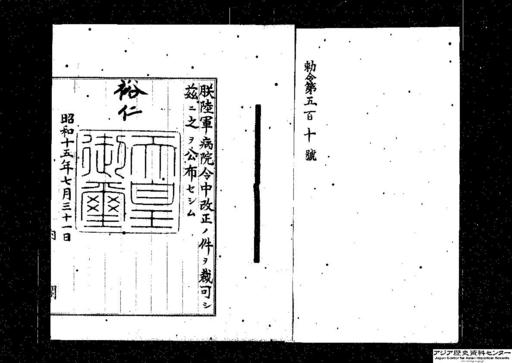 勅令第五百十號
朕陸軍病院令中改正ノ件ヲ裁可シ
茲ニ之ヲ公布セシム
裕仁
天皇
御璽
昭和十五年七月三十一日
アジア歴史資料センター
Japan Center for Asian Historical Records